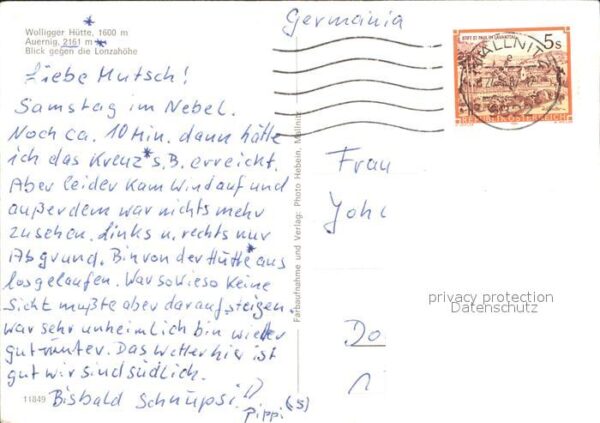 Wolligger Hütte, 1600 m
Auernig, 2161 m *
Blick gegen die Lonzahöhe
Germania
STIFT ST. PAUL IM LAVANTTAL
5s
REPUBLIK ÖSTERREICH
MALLNITZ
Liebe Mutsch!
Samstag im Nebel.
Noch ca. 10 Min. dann hätte
ich das Kreuz * s.B. erreicht.
Aber leider kam Wind auf und
außerdem war nichts mehr
zu sehen. Links u. rechts nur
Abgrund. Bin von der Hütte * aus
losgelaufen. War sowieso keine
Sicht mußte aber daraufsteigen.
War sehr unheimlich bin wieder
gut runter. Das Wetter hier ist
gut wir sind südlich.
Bis bald Schnupsi!
Pippi (s)
11849
Farbaufnahme und Verlag: Photo Hebein, Mallnitz
Frau
Joh
Do
1
privacy protection
Datenschutz